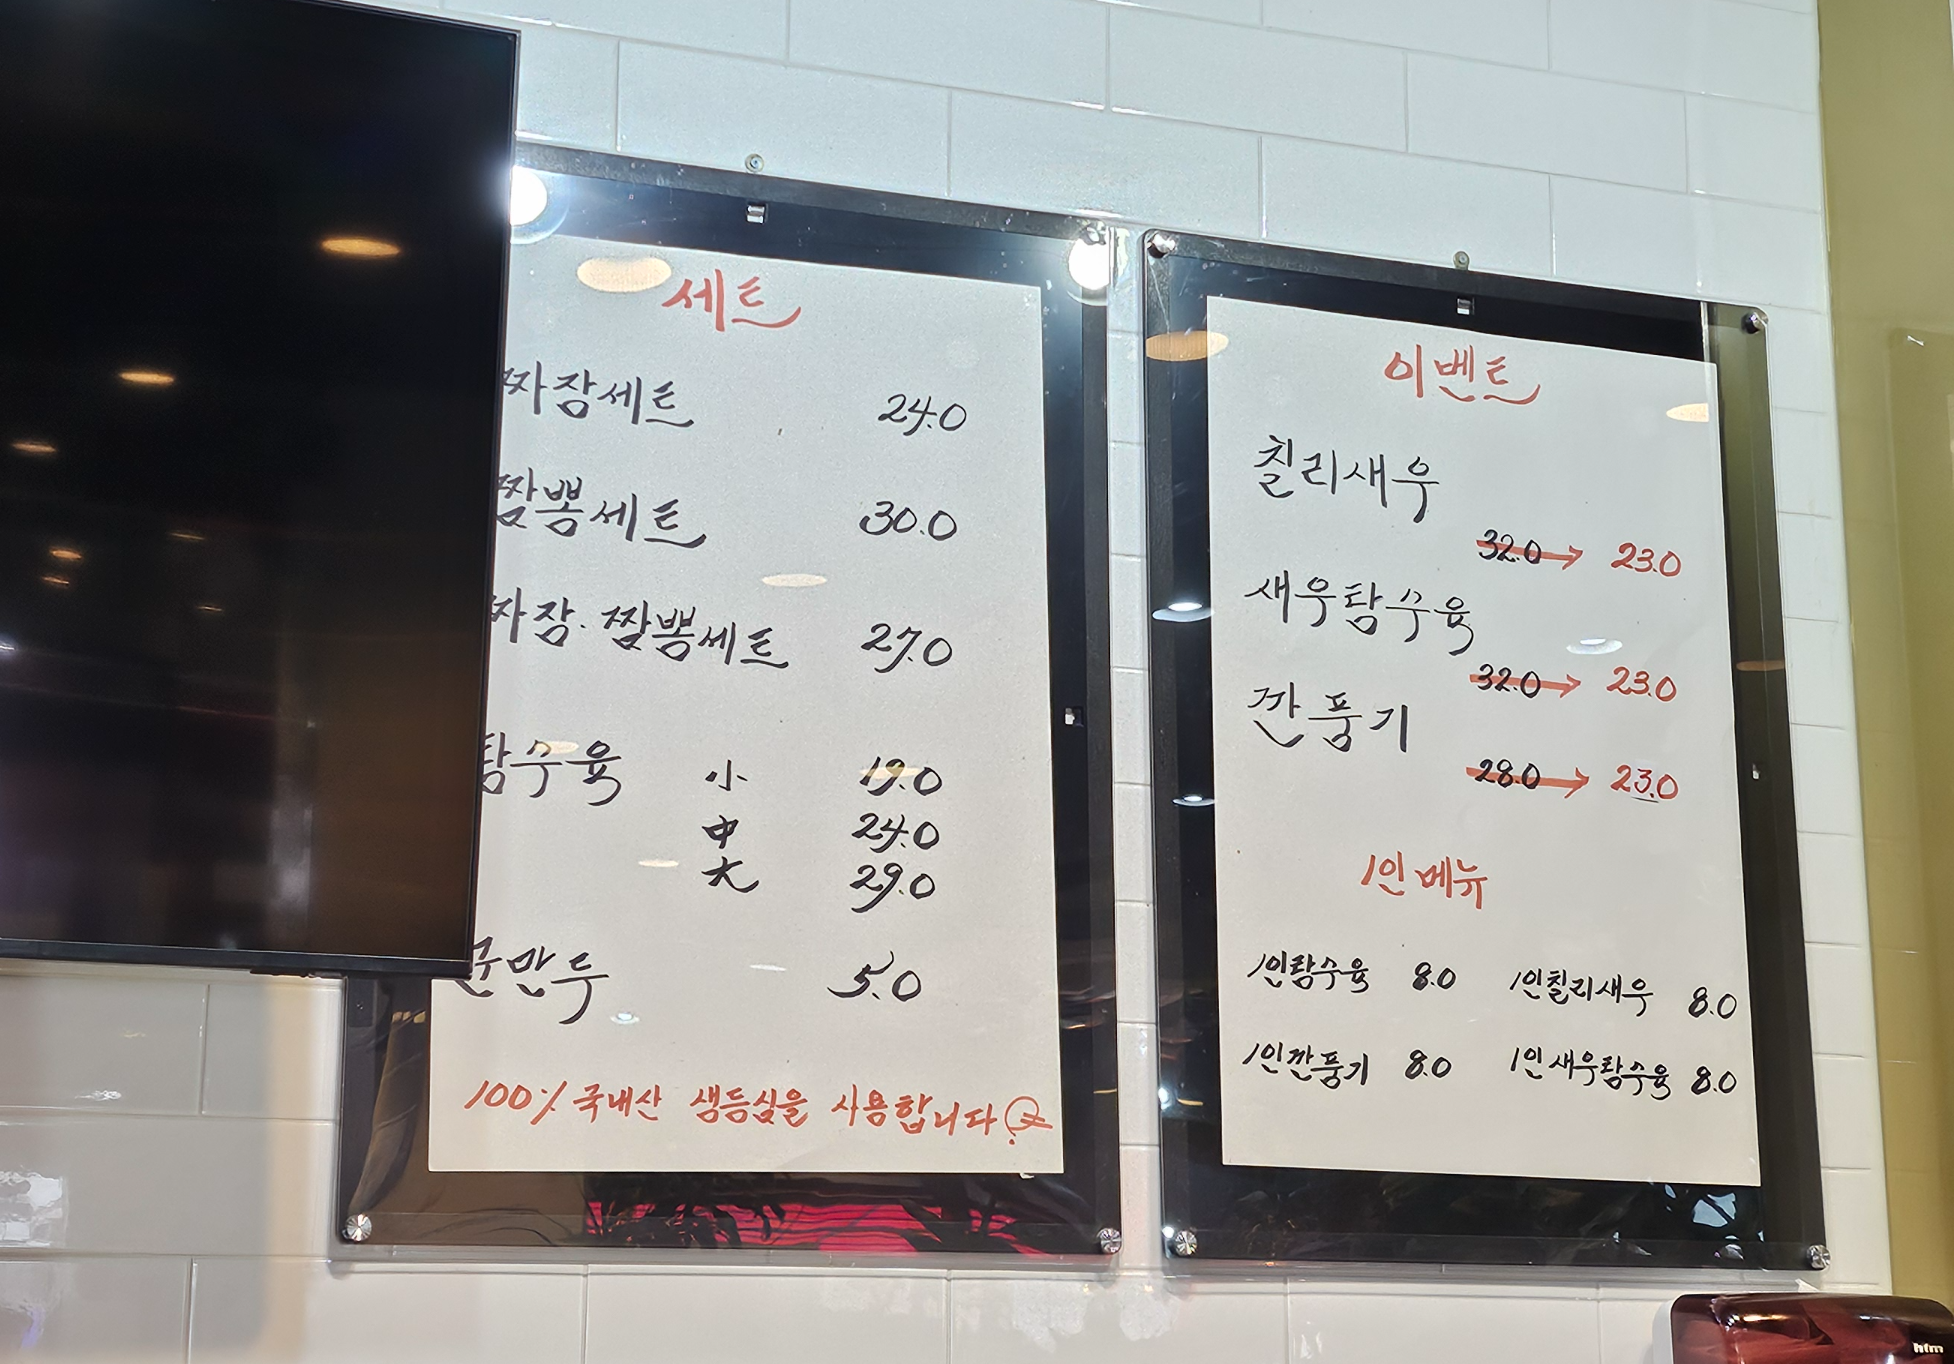 세트
짜장세트 24.0
짬뽕세트 30.0
짜장·짬뽕세트 27.0
탕수육 小 19.0
中 24.0
大 29.0
군만두 5.0
100% 국내산 생등심을 사용합니다
이벤트
칠리새우
32.0→23.0
새우탕수육
32.0→23.0
깐풍기
28.0→23.0
1인 메뉴
1인탕수육 8.0 1인칠리새우 8.0
1인깐풍기 8.0 1인새우탕수육 8.0